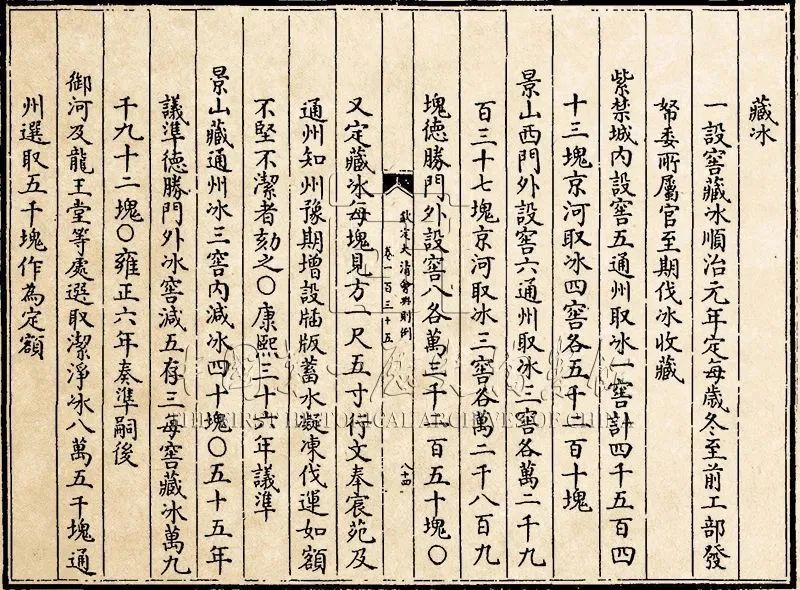 藏冰
一設窖藏冰順治元年定每歲冬至前工部發
帑委所屬官至期伐冰收藏
紫禁城內設窖五通州取冰一窖計四千五百四
十三塊京河取冰四窖各五千二百十塊
景山西門外設窖六通州取冰三窖各萬二千九
百三十七塊京河取冰三窖各萬二千八百九
塊德勝門外設窖八各萬三千一百五十塊〇
欽定大清會典則例
卷一百三十五
八十四
又定藏冰每塊見方一尺五寸行文奉宸苑及
通州知州豫期增設牐版蓄水凝凍伐運如額
不堅不潔者劾之〇康熙三十六年議準
景山藏通州冰三窖內減冰四十塊〇五十五年
議準德勝門外冰窖減五存三每窖藏冰萬九
千九十二塊〇雍正六年奏準嗣後
御河及龍王堂等處選取潔淨冰八萬五千塊通
州選取五千塊作為定額
中國第一歷史檔案館
THE FIRST HISTORICAL ARCHIVES OF CHINA